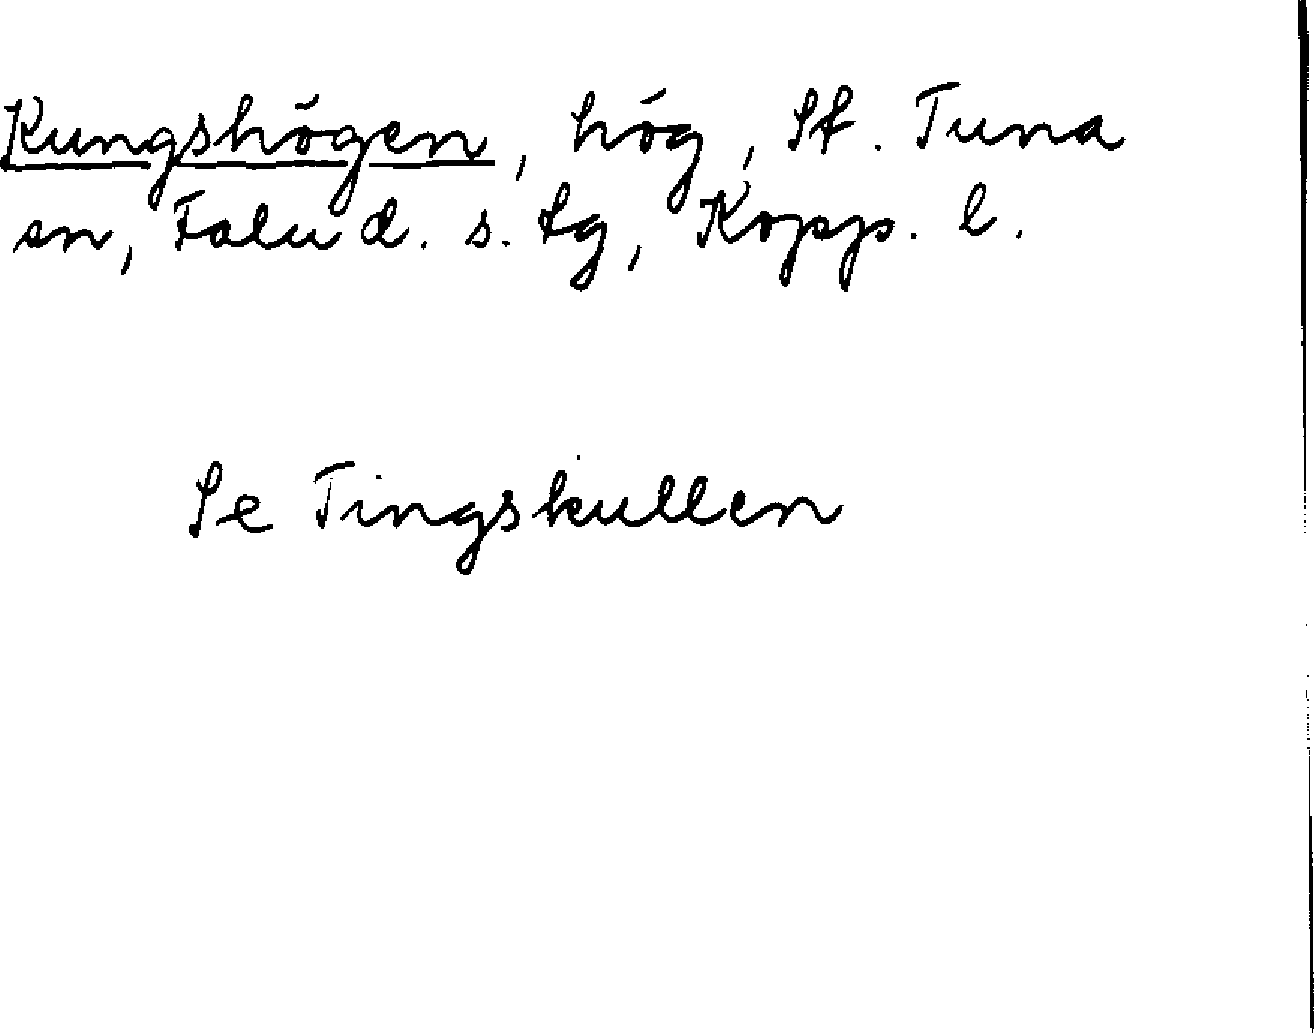 Kungshögen, hög, St. Tuna
sn, Falu d. s. tg, Kopp. l.
Se Tingskullen